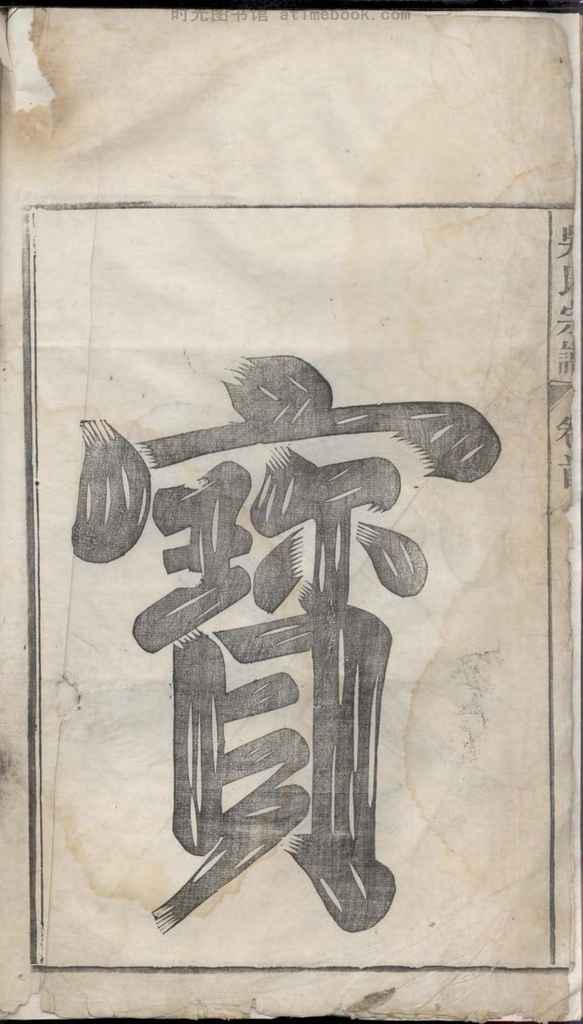 时光图书馆 atimebook.com
吳氏宗譜 卷首
寳